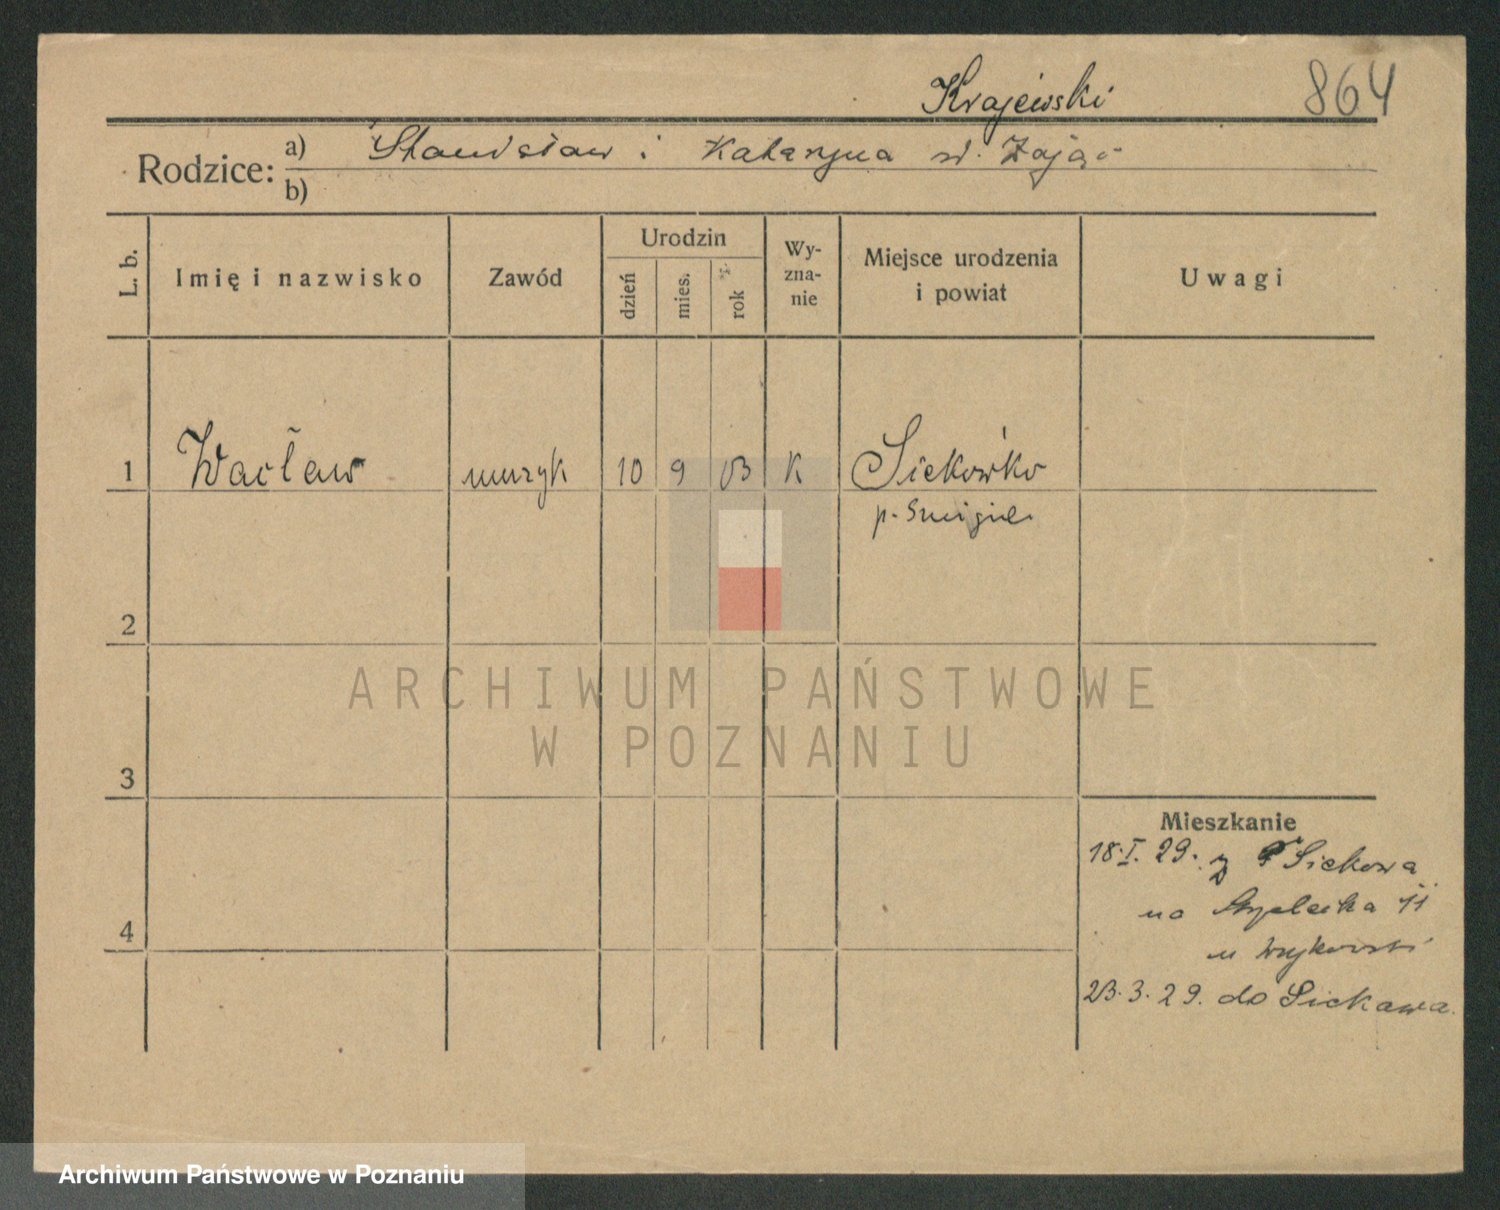 Krajewski 864
Rodzice: a) Stanisław i Katarzyna z d. Zając
b)
L. b.
Imię i nazwisko
Zawód
Urodzin
dzień
mies.
rok
Wy-
zna-
nie
Miejsce urodzenia
i powiat
Uwagi
1 Wacław muzyk 10 9 03 K Siekówko
p. Śmigiel
2
3
4
Mieszkanie
18.I.29. z Siekowa
na 11
u
23.3.29. do Siekowa.
ARCHIWUM PAŃSTWOWE
W POZNANIU
Archiwum Państwowe w Poznaniu